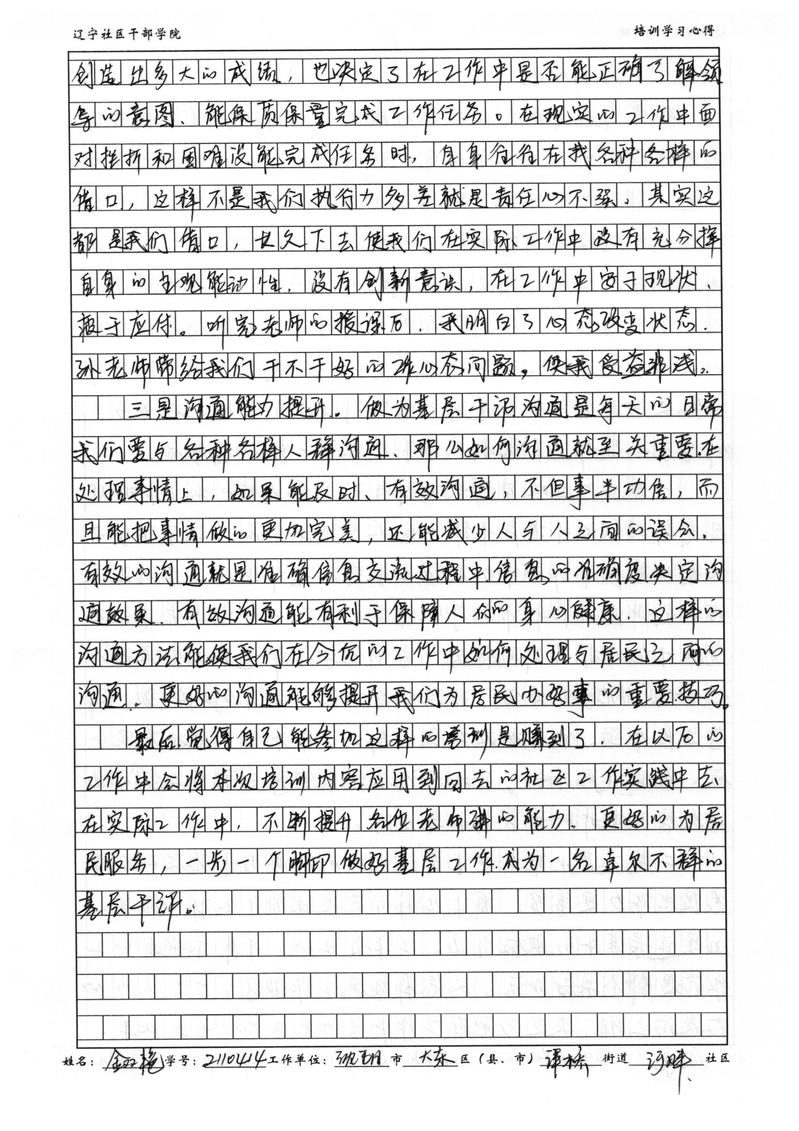 辽宁社区干部学院
培训学习心得
创造出多大的成绩，也决定了在工作中是否能正确了解领
导的意图、能保质保量完成工作任务。在现实的工作中面
对挫折和困难没能完成任务时，自身往往在找各种各样的
借口，这样不是我们执行力多差就是责任心不强，其实这
都是我们借口，长久下去使我们在实际工作中没有充分挥
自身的主观能动性，没有创新意识，在工作中安于现状、
疲于应付。听完老师的授课后，我明白了心态改变状态，
孙老师带给我们干不干好的工作心态问题。使我受益非浅。
三是沟通能力提升。做为基层干部沟通是每天的日常
我们要与各种各样人群沟通、那么如何沟通就至关重要在
处理事情上，如果能及时、有效沟通，不但事半功倍，而
且能把事情做的更加完美，还能减少人与人之间的误会。
有效的沟通就是准确信息交流过程中信息的准确度决定沟
通效果，有效沟通能有利于保障人们的身心健康，这样的
沟通方法能使我们在今后的工作中如何处理与居民之间的
沟通，更好的沟通能够提升我们为居民办好事的重要技巧。
最后觉得自己能参加这样的培训是赚到了，在以后的
工作中会将本次培训内容应用到回去的社区工作实践中去
在实际工作中，不断提升各位老师讲的能力。更好的为居
民服务，一步一个脚印做好基层工作.成为一名卓尔不群的
基层干部。
姓名：金 艳 学号：2110414 工作单位：沈阳 市 大东 区（县、市） 桥 街道 河畔 社区